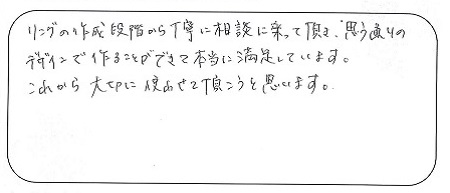 リングの作成段階から丁寧に相談に乗って頂き、思う通りの
デザインで作ることができて本当に満足しています。
これから大切に使わせて頂こうと思います。